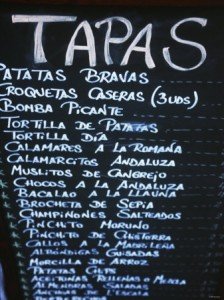 TAPAS
PATATAS BRAVAS
CROQUETAS CASERAS (3UDS)
BOMBA PICANTE
TORTILLA DE PATATAS
TORTILLA DÍA
CALAMARES A LA ROMANA
CALAMARCITOS ANDALUZA
MUSLITOS DE CANGREJO
CHOCOS A LA ANDALUZA
BACALAO A LA LLAUNA
BROCHETA DE SEPIA
CHAMPIÑONES SALTEADOS
PINCHITO MORUNO
PINCHITO DE
CALLOS A LA MADRILEÑA
ALBÓNDIGAS GUISADAS
MORCILLA DE ARROZ
PATATAS CHIPS
ACEITUNAS RELLENAS O MEZCLA
ALMENDRAS SALADAS
ANCHOAS DE L'ESCALA